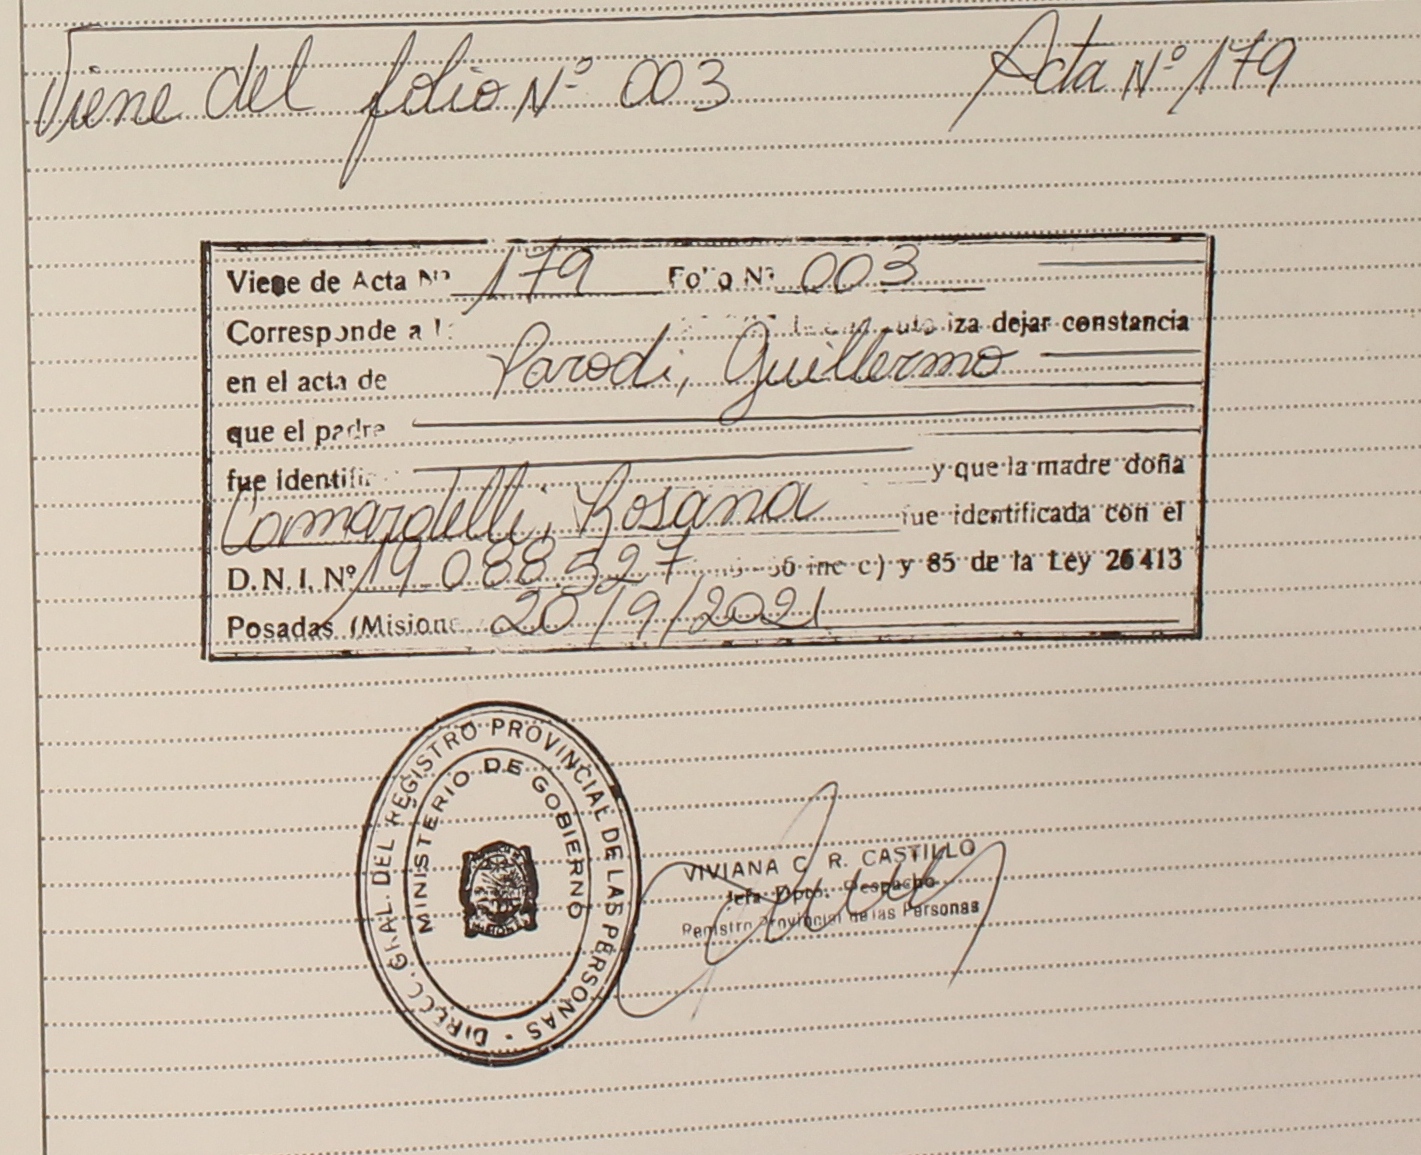 Viene del folio Nº 003 Acta Nº 179
Viene de Acta Nº 179 Folio Nº 003
Corresponde a iza dejar constancia
en el acta de Parodi, Guillermo
que el padre
fue y que la madre doña
Camardelli, Rosana fue identificada con el
D.N.I.Nº 19.088.527 inc c) y 85 de la Ley 26413
Posadas (Misione 20/9/2021
DIRECC. GRAL. DEL REGISTRO PROVINCIAL DE LAS PERSONAS -
MINISTERIO DE GOBIERNO
VIVIANA C. R. CASTILLO
Jefa Dpto. Despacho
Registro Provincial de las Personas